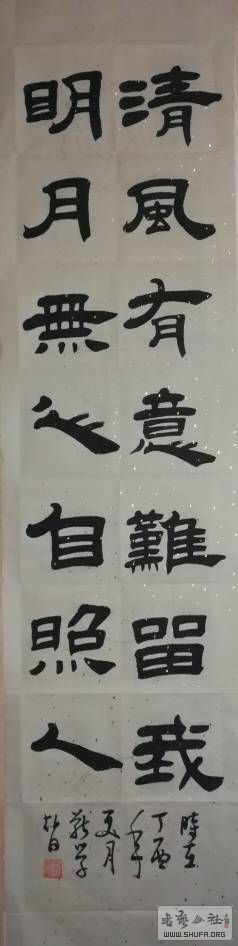 清風有意難留我
明月無心自照人
時在
丁酉年
夏月
書藝公社
WWW.SHUFA.ORG